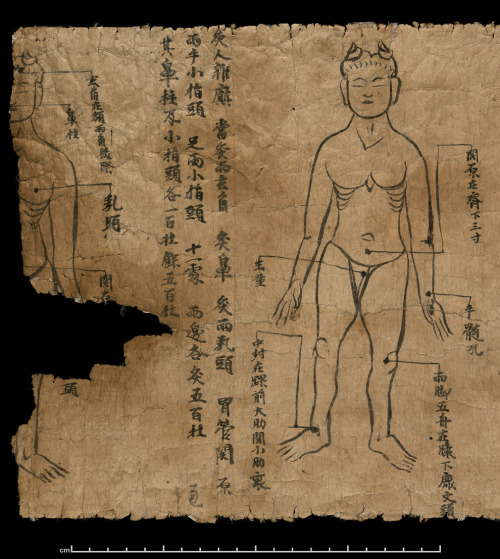 関原在齊下三寸
手髓孔
兩脚五舟在膝下麁文頭
玉莖
中封在踝前大肋開小肋裏
灸人雜癲 當灸兩玄角 灸鼻 灸兩乳頭 胃管関原
兩手小指頭 足兩小指頭 十一處 兩邊各灸五百柱
其鼻柱及小指頭各一百柱餘五百柱
玄角在額兩角髮際
鼻柱
乳頭
関
頭
cm